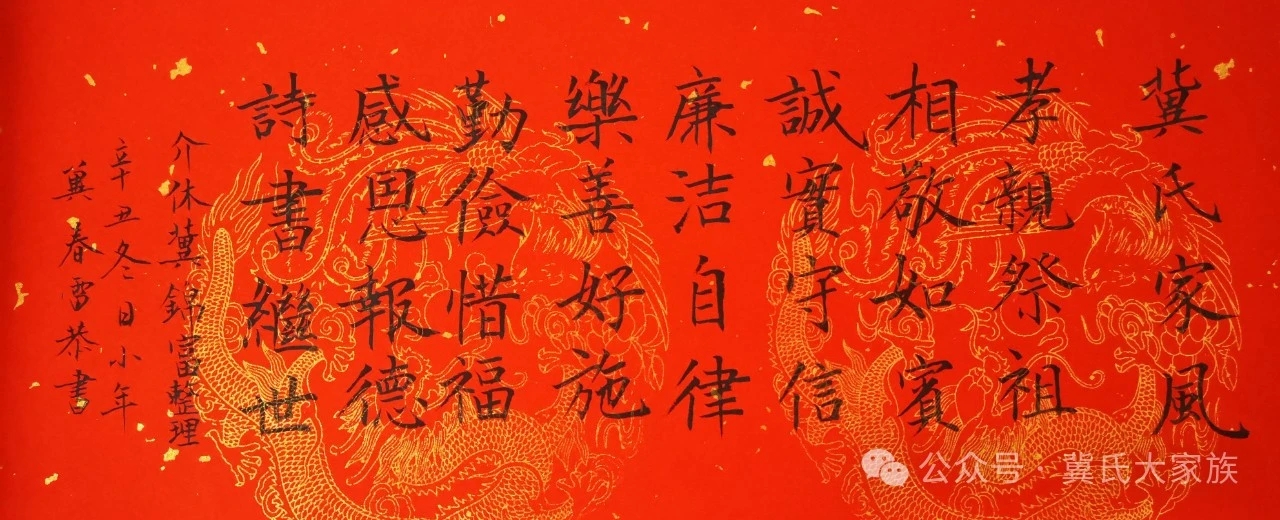 冀氏家風
孝親祭祖
相敬如賓
誠實守信
廉洁自律
樂善好施
勤儉惜福
感恩報德
詩書繼世
介休冀錦當整理
辛丑冬日小年
冀春雷恭書
公众号·冀氏大家族